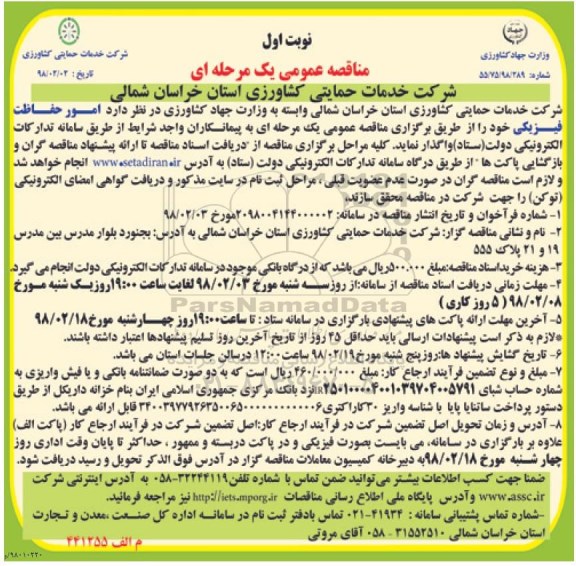 نوبت اول
جهاد
وزارت جهادکشاورزی
شماره: ۵۵/۷۵/۹۸/۲۸۹
شرکت خدمات حمایتی کشاورزی
تاریخ: ۹۸/۰۲/۰۲
مناقصه عمومی یک مرحله ای
شرکت خدمات حمایتی کشاورزی استان خراسان شمالی
شرکت خدمات حمایتی کشاورزی استان خراسان شمالی وابسته به وزارت جهاد کشاورزی در نظر دارد امور حفاظت
فیزیکی خود را از طریق برگزاری مناقصه عمومی یک مرحله ای به پیمانکاران واجد شرایط از طریق سامانه تدارکات
الکترونیکی دولت(ستاد)واگذار نماید. کلیه مراحل برگزاری مناقصه از دریافت اسناد مناقصه تا ارائه پیشنهاد مناقصه گران و
بازگشایی پاکت ها از طریق درگاه سامانه تدارکات الکترونیکی دولت (ستاد) به آدرس www.setadiran.ir انجام خواهد شد
و لازم است مناقصه گران در صورت عدم عضویت قبلی ، مراحل ثبت نام در سایت مذکور و دریافت گواهی امضای الکترونیکی
(توکن) را جهت شرکت در مناقصه محقق سازند.
۱- شماره فرآخوان و تاریخ انتشار مناقصه در سامانه: ۲۰۹۸۰۰۴۱۴۴۰۰۰۰۰۲مورخ ۹۸/۰۲/۰۳
۲- نام و نشانی مناقصه گزار: شرکت خدمات حمایتی کشاورزی استان خراسان شمالی به آدرس: بجنورد بلوار مدرس بین مدرس
۱۹ و ۲۱ پلاک ۵۵۵
۳- هزینه خرید اسناد مناقصه:مبلغ ۵۰۰.۰۰۰ریال می باشد که از درگاه بانکی موجود در سامانه تدارکات الکترونیکی دولت انجام می گیرد.
۴- مهلت زمانی دریافت اسناد مناقصه از سامانه:از روز سه شنبه مورخ ۹۸/۰۲/۰۳ لغایت ساعت ۱۹:۰۰روزیک شنبه مورخ
۹۸/۰۲/۰۸ (۵ روز کاری )
۵- آخرین مهلت ارائه پاکت های پیشنهادی بارگزاری در سامانه ستاد : تا ساعت ۱۹:۰۰روز چهارشنبه مورخ۹۸/۰۲/۱۸
*لازم به ذکر است پیشنهادات ارسالی باید حداقل ۴۵ روز از تاریخ آخرین روز تسلیم پیشنهادها اعتبار داشته باشند.
۶- تاریخ گشایش پیشنهاد ها:روزپنج شنبه مورخ۹۸/۰۲/۱۹ ساعت ۱۲:۰۰ درسالن جلسات استان می باشد.
۷- مبلغ و نوع تضمین فرآیند ارجاع کار: مبلغ ۴۶۰/۰۰۰/۰۰۰ ریال است که به دو صورت ضمانتنامه بانکی و یا فیش واریزی به
دستور پرداخت ساتنایا پایا با شناسه واریز ۳۰ کاراکتری قابل ارائه می باشد.
۸- آدرس و زمان تحویل اصل تضمین شرکت در فرآیند ارجاع کار:اصل تضمین شرکت در فرآیند ارجاع کار (پاکت الف)
علاوه بر بارگزاری در سامانه، می بایست بصورت فیزیکی و در پاکت دربسته و ممهور ، حداکثر تا پایان وقت اداری روز
چهار شنبه مورخ ۹۸/۰۲/۱۸به دبیرخانه کمیسیون معاملات مناقصه گزار در آدرس فوق الذکر تحویل و رسید دریافت شود.
ضمنا جهت کسب اطلاعات بیشتر می‌توانید ضمن تماس با شماره تلفن ۳۲۲۴۴۱۱۹-۰۵۸ به آدرس اینترنتی شرکت
www.assc.ir وآدرس پایگاه ملی اطلاع رسانی مناقصات http://iets.mporg.ir نیز مراجعه فرمایید.
-شماره تماس پشتیبانی سامانه : ۴۱۹۳۴-۰۲۱ تماس بادفتر ثبت نام در سامانه اداره کل صنعت ،معدن و تجارت
استان خراسان شمالی ۳۱۵۵۲۵۱۰ - ۰۵۸ آقای مروتی
م الف ۴۴۱۲۵۵
ParsNamadData